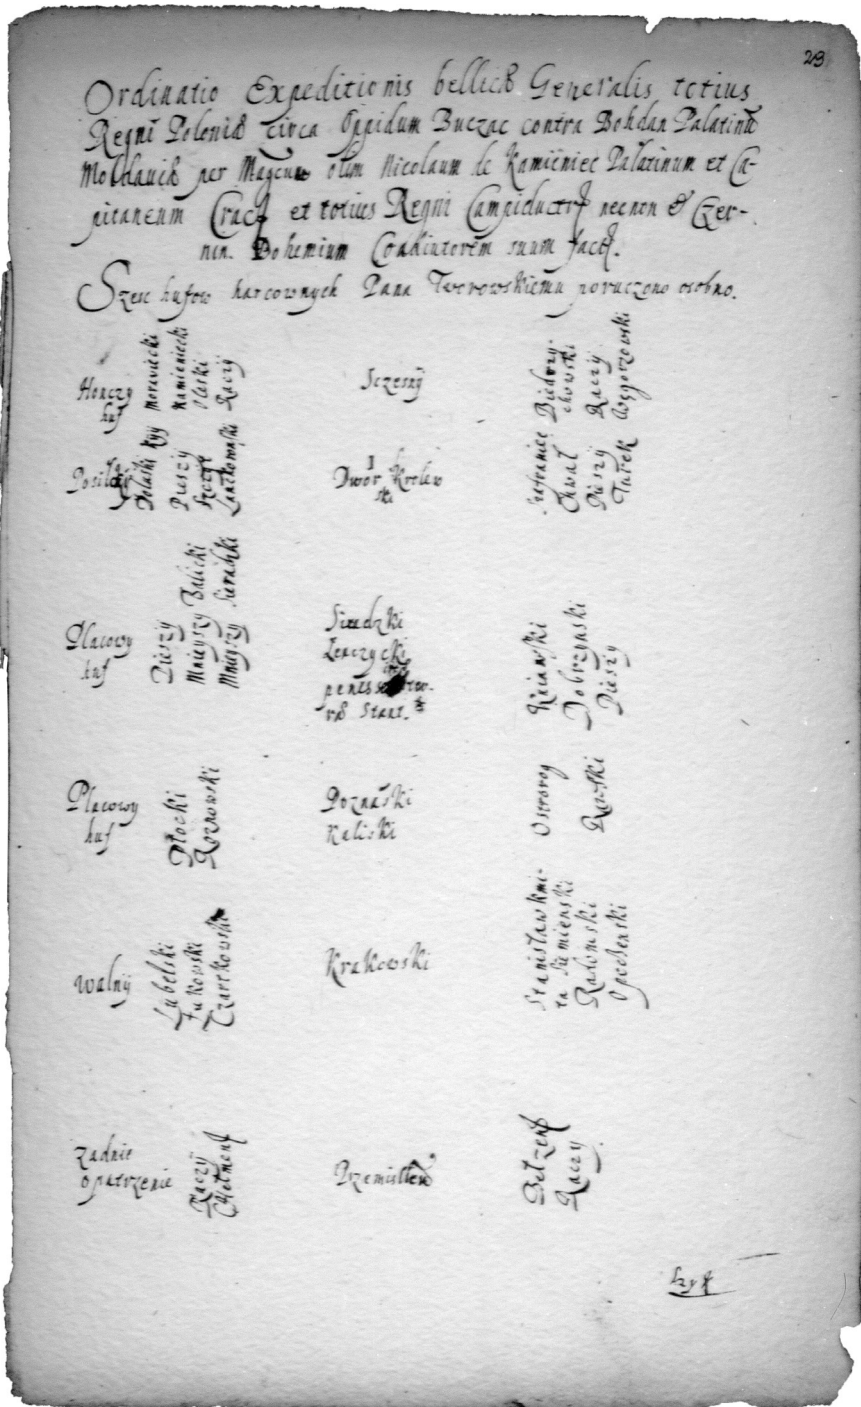 23
Ordinatio Expeditionis bellicæ Generalis totius
Regni Poloniæ circa Oppidum Buczac contra Bohdan Palatinũ
Moldauiæ per olim Nicolaum de Kamieniec Palatinum et Ca-
pitaneum Crac et totius Regni necnon & Czer-
nin. Bohemium Coadiutorem suum fact.
Szesc hufow harcownych Pana Tworowskiemu poruczono osobno.
Honczy
huf
Morawiecki
Kamieniecki
Oleski
Raczÿ
Sczesnÿ
Biedrzy-
chowski
Raczÿ
Węgorzowski
Kÿÿ
Pieszÿ
Lanczkowski
I
Dwor Krolew
ski
Szafraniec
Chwał
Pieszÿ
Turek
Placowy
huf
Pieszÿ
Mnieyszy Balicki
Mnieyszy Sieradzki
Siradzki
Lenczycki
penes
Stant.
Kuiawski
Dobrzynski
Pieszÿ
Placowy
huf
Płocki
Roznowski
Poznański
Kaliski
Ostrorog
Walnÿ
Lubelski
Łukowski
Czartkowski
Krakowski
Stanisław Kmi-
ta Siemienski
Radomski
Opoczenski
Zadnie
opatrzenie
Raczÿ
Chełmen
Przemislien
Bełzen
Raczÿ.